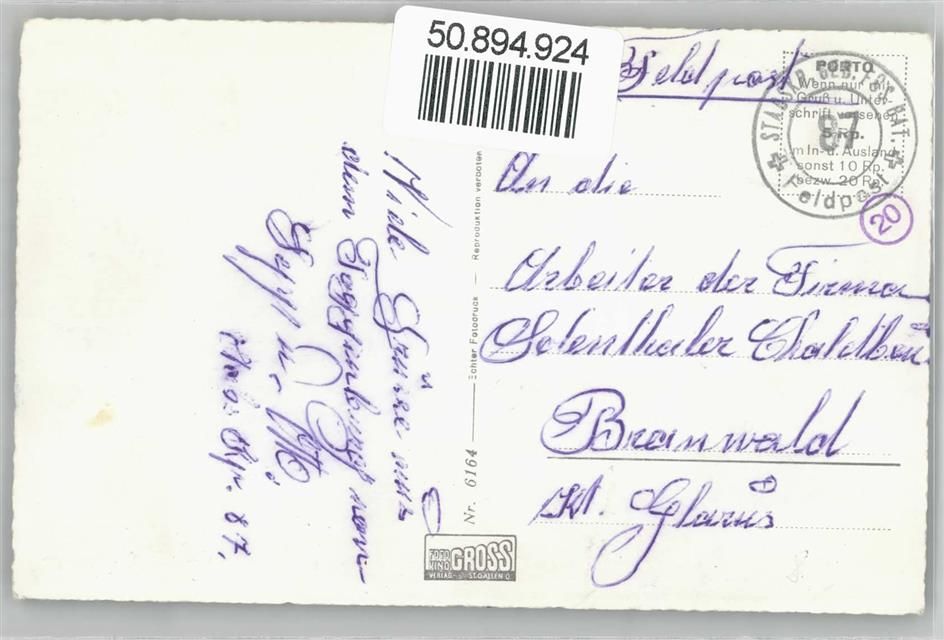 50.894.924
Feldpost
PORTO
Wenn nur mit
Gruß u. Unter-
schrift versehen
5 Rp.
im In- u. Ausland
sonst 10 Rp.
bezw. 20 Rp.
STAB GEB. FÜS. BAT.
87
Feldpost
20
An die
Arbeiter der Firma
Selenthaler Chaletbau
Braunwald
Kt. Glarus
Viele Grüsse aus
dem Toggenburg von
Sepp u. Otto
87.
Nr. 6164 — Echter Fotodruck — Reproduktion verboten
FOTO GROSS
VERLAG ST. GALLEN O.